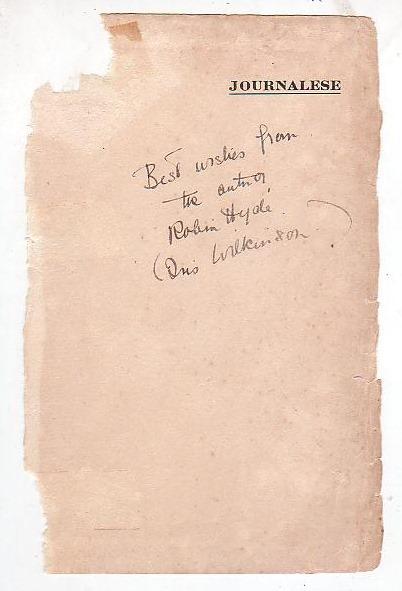 JOURNALESE
Best wishes from
the author
Robin Hyde.
(Iris Wilkinson)